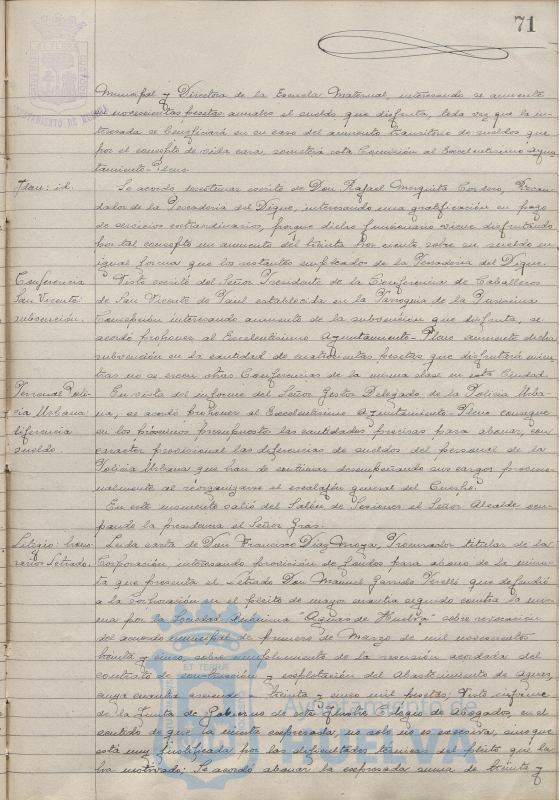 71
Municipal y Directora de la Escuela Maternal, interesando se aumente
en novecientas pesetas anuales el sueldo que disfruta, toda vez que la in-
teresada se beneficiará en su caso del aumento transitorio de sueldos que
por el concepto de vida cara, someterá esta Comisión al Excelentísimo Ayun-
tamiento-Pleno.
Idem: id.
Se acordó desestimar escrito de Don Rafael Mezquita Cordero, Recau-
dador de la Pescadería del Dique, interesando una gratificación en pago
de servicios extraordinarios, porque dicho funcionario viene disfrutando
por tal concepto un aumento del treinta por ciento sobre su sueldo en
igual forma que los restantes empleados de la Pescadería del Dique.
Conferencia
San Vicente:
subvención.
Visto escrito del Señor Presidente de la Conferencia de Caballeros
de San Vicente de Paul establecida en la Parroquia de la Purísima
Concepción interesando aumento de la subvención que disfruta, se
acordó proponer al Excelentísimo Ayuntamiento-Pleno aumente dicha
subvención en la cantidad de cuatrocientas pesetas que disfrutará mien-
tras no se creen otras Conferencias de la misma clase en esta Ciudad.
Personal Poli-
cía Urbana:
diferencia
sueldo.
En vista del informe del Señor Gestor Delegado de la Policía Urba-
na, se acordó proponer al Excelentísimo Ayuntamiento Pleno consigne
en los próximos presupuestos las cantidades precisas para abonar, con
carácter provisional las diferencias de sueldos del personal de la
Policía Urbana que han de continuar desempeñando sus cargos provisio-
nalmente al reorganizarse el escalafón general del Cuerpo.
En este momento salió del Salón de Sesiones el Señor Alcalde ocu-
pando la presidencia el Señor Gras.
Litigio: hono-
rarios Letrado.
Leída carta de Don Francisco Díaz Procurador titular de la
Corporación, interesando provisión de fondos para abono de la minu-
ta que presenta el Letrado Don Manuel Garrido que defendió
a la Corporación en el pleito de mayor cuantía seguido contra la mis-
ma por la Sociedad Anónima "Aguas de Huelva" sobre revocación
del acuerdo municipal de primero de Marzo de mil novecientos
treinta y cinco, sobre cumplimiento de la rescisión acordada del
contrato de construcción y explotación del Abastecimiento de aguas,
cuya cuantía asciende a treinta y cinco mil pesetas; Visto informe
de la Junta de Gobierno de este Ilustre Colegio de Abogados, en el
sentido de que la minuta expresada, no solo no es excesiva, sino que
está muy justificada por las dificultades técnicas del pleito que la
ha motivado; Se acordó abonar la expresada suma de treinta y
ET TERRÆ
Ayuntamiento de
HUELVA